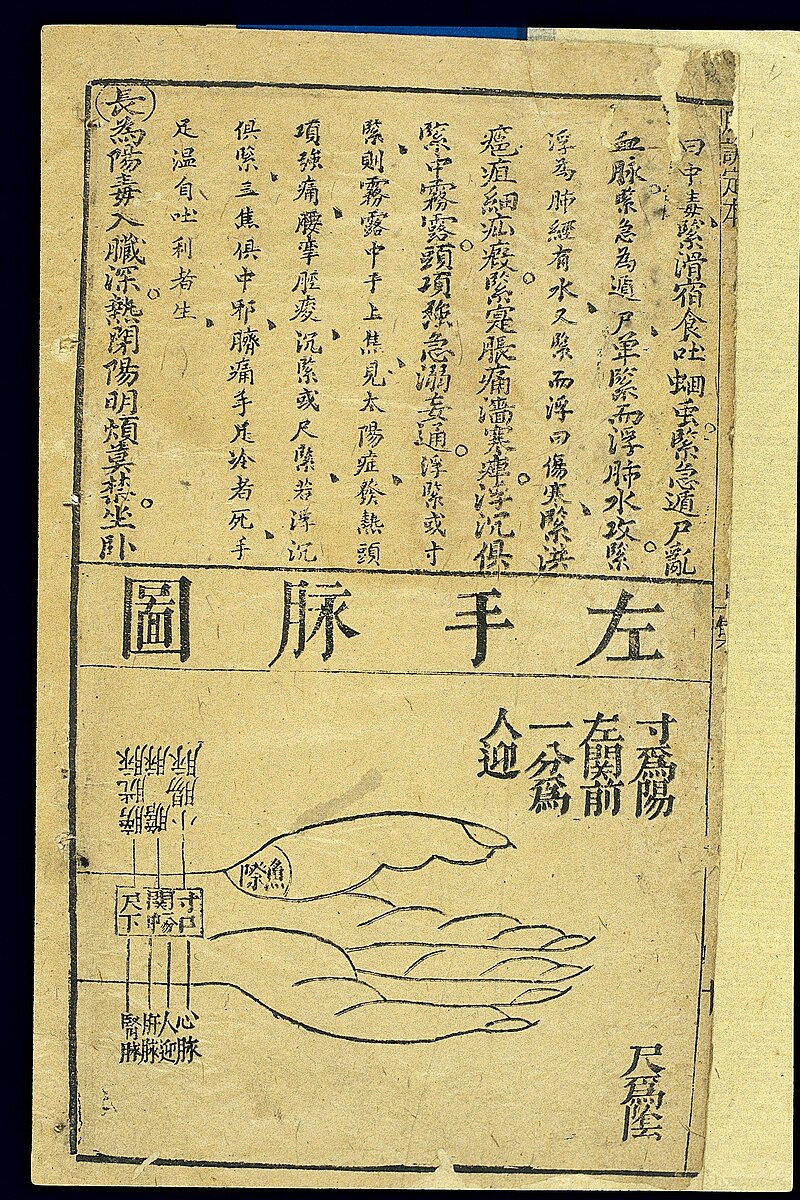 曰中毒緊滑宿食吐蛔䖝緊急遁尸亂
血脉緊急為遁尸單緊而浮肺水攻緊
浮為肺經有水又緊而浮曰傷寒緊洪
瘡疽細疝瘕緊寔脹痛濇寒痺浮沉俱
緊中霧露頭項強急溺妄通浮緊或寸
緊則霧露中于上焦見太陽症發熱頭
項強痛腰攣脛痠沉緊或尺緊若浮沉
俱緊三焦俱中邪臍痛手足冷者死手
足温自吐利者生
長為陽毒入臟深熱閉陽明煩莫禁坐卧
左手脉圖
寸爲陽
左関前
一分爲
人迎
魚際
小腸脉
膽脉
膀胱脉
寸口
関中
尺下
心脉
人迎
肝脉
腎脉
尺爲陰